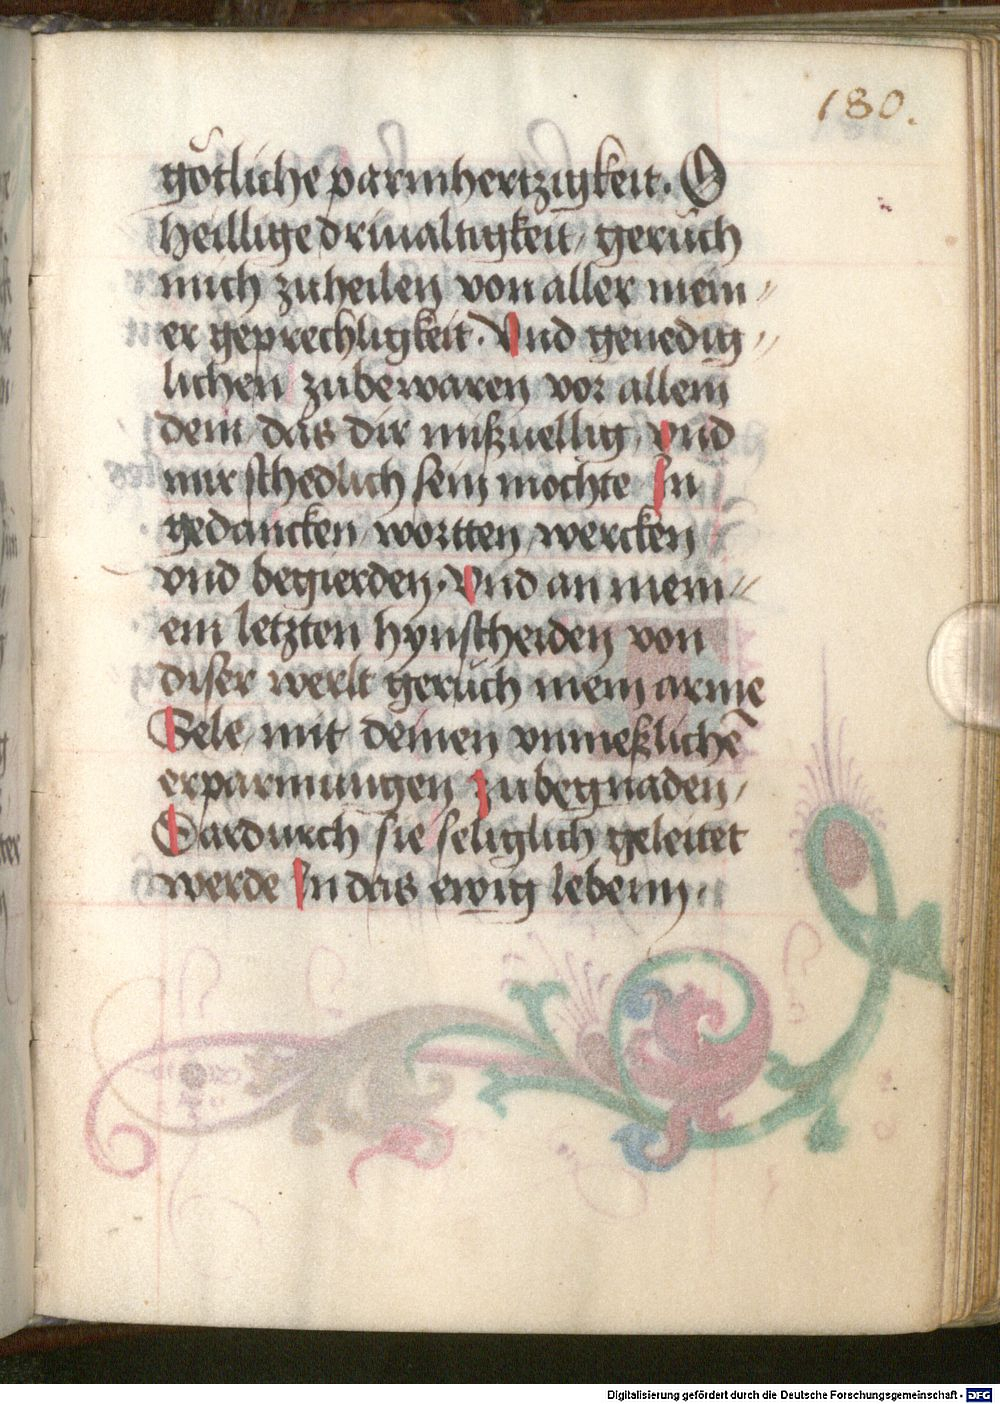 180.
götliche parmhertzigkeit. O
heillige driualtigkeit, gerůch
mich zuheilen von aller mein⸗
er geprechligkeit. Vnd genedig⸗
lichen zubewaren vor allem
dem, das dir mißuellig, vnd
mir schedlich sein mochte In
gedancken, wortten, wercken
vnd begierden. Vnd an mein⸗
em letzten hynscheiden von
diser werlt gerůch mein arme
Sele, mit deinen vnmeßlichē
erparmungen zubegnaden,
Dardurch sie seliglich geleitet
werde In das ewig lebenn.
Digitalisierung gefördert durch die Deutsche Forschungsgemeinschaft - DFG